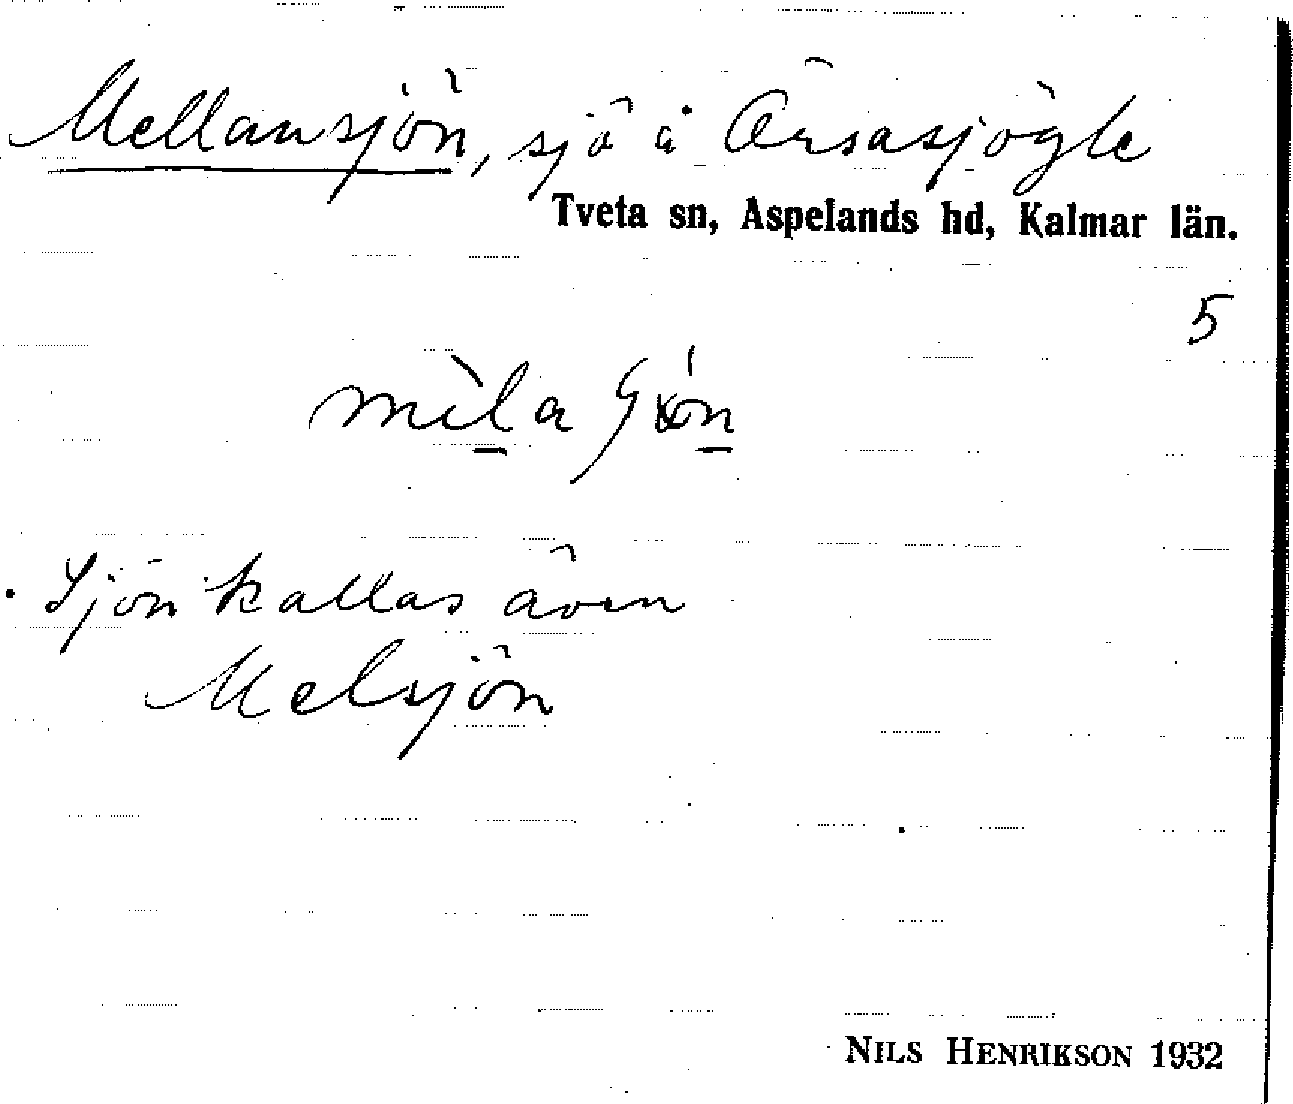 Mellansjön, sjö å Ärsasjögle
Tveta sn, Aspelands hd, Kalmar län.
5
Sjön kallas även
Melsjön
NILS HENRIKSON 1932